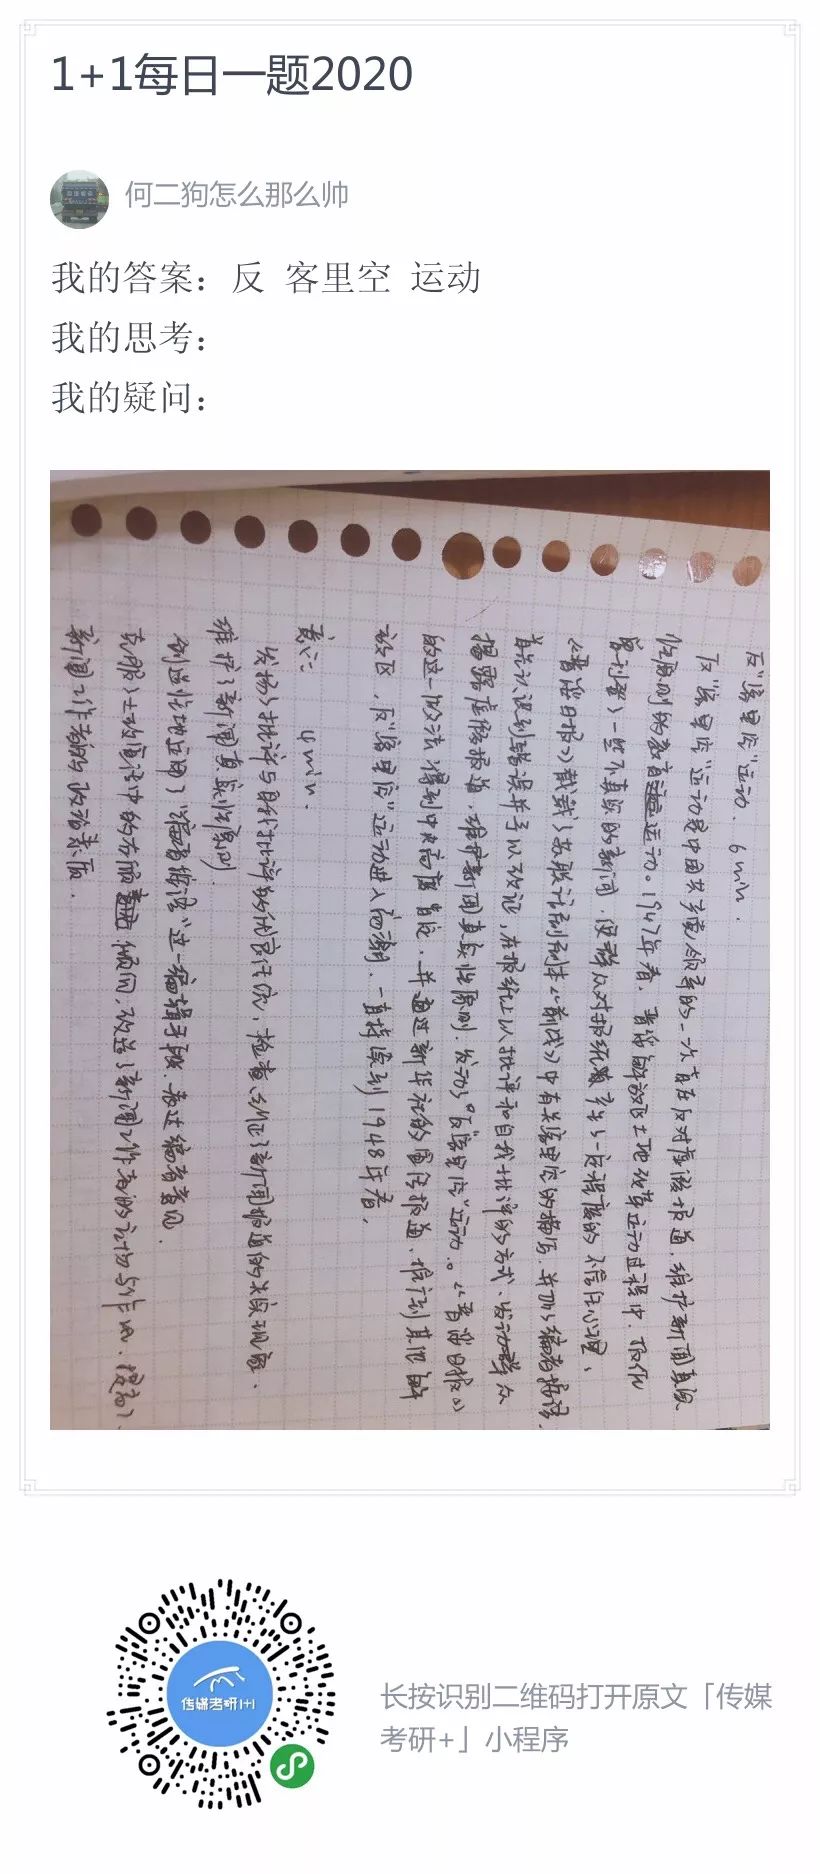 1+1每日一题2020
何二狗怎么那么帅
我的答案：反 客里空 运动
我的思考：
我的疑问：
反"客里空"运动. 6min.
反"客里空"运动是中国共产党领导的一次旨在反对虚假报道，维护新闻真实
性原则的教育运动。1947年春，晋绥解放区土地改革运动过程中，
一些不真实的新闻，使群众对报纸产生一定程度的不信任心理，
《晋绥日报》载了苏联话剧剧本《前线》中有关客里空的描写，并加编者按语
认识到错误并予以改正，在报纸上以批评和自我批评的方式、发动群众
揭露虚假报道，维护新闻真实性原则，发动了"反客里空"运动。《晋绥日报》
的这一做法得到中央高度肯定，并通过新华社的宣传报道，推行到其他解
放区，反"客里空"运动进入高潮，一直持续到1948年春，
意义: 4min.
发扬了批评与自我批评的优良作风，检查纠正了新闻报道的失实现象，
维护了新闻真实性原则.
创造性地运用了"编者按语"这一编辑手段，表达编者意见.
克服了土改宣传中的右倾倾向，改造了新闻工作者的立场与作风，提高了
新闻工作者的政治素质.
传媒考研1+1
长按识别二维码打开原文「传媒
考研+」小程序